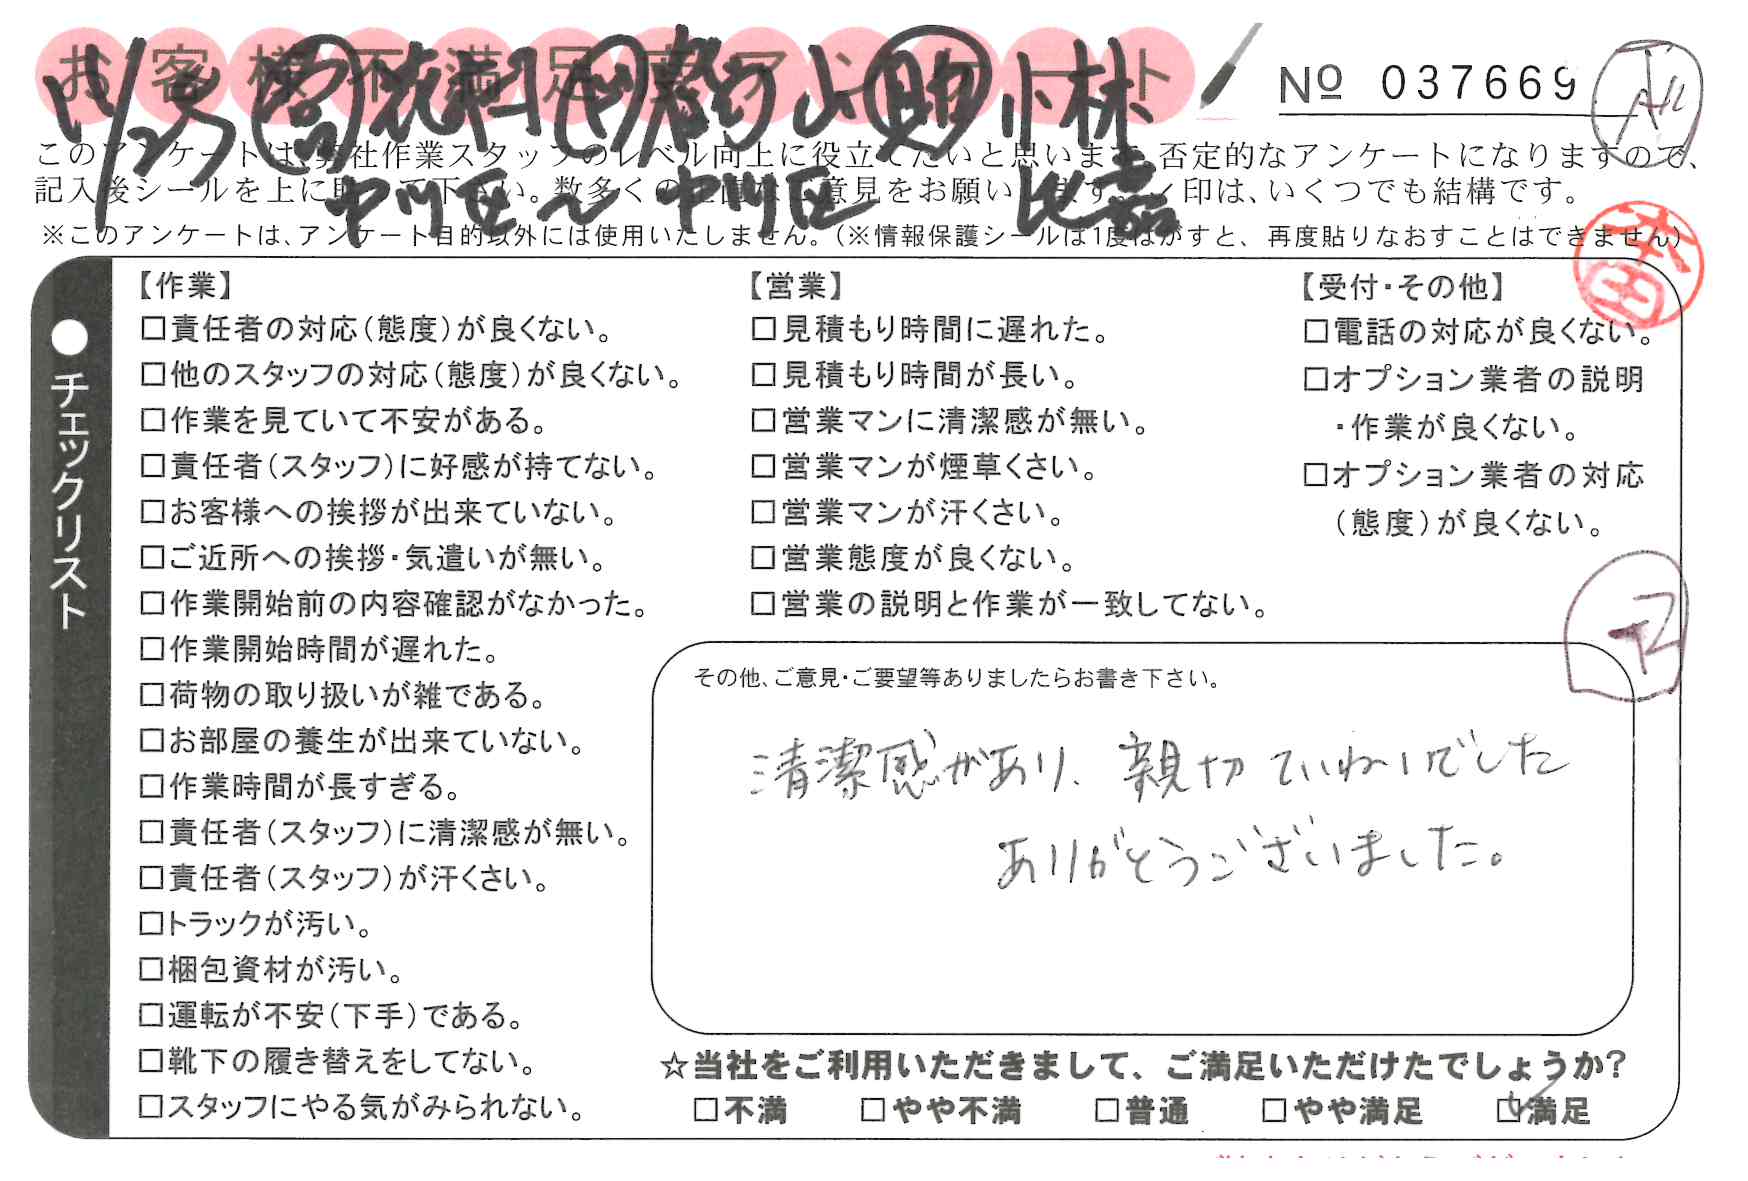 お客様不満足度アンケート
№ 037669
11/25 営 志村 小林
中川区〜中川区 比嘉
このアンケートは、弊社作業スタッフのレベル向上に役立てたいと思います。否定的なアンケートになりますので、
記入後シールを上に貼って下さい。数多くの正直なご意見をお願いします。✓印は、いくつでも結構です。
※このアンケートは、アンケート目的以外には使用いたしません。(※情報保護シールは1度はがすと、再度貼りなおすことはできません)
本田
●チェックリスト
【作業】
□責任者の対応(態度)が良くない。
□他のスタッフの対応(態度)が良くない。
□作業を見ていて不安がある。
□責任者(スタッフ)に好感が持てない。
□お客様への挨拶が出来ていない。
□ご近所への挨拶・気遣いが無い。
□作業開始前の内容確認がなかった。
□作業開始時間が遅れた。
□荷物の取り扱いが雑である。
□お部屋の養生が出来ていない。
□作業時間が長すぎる。
□責任者(スタッフ)に清潔感が無い。
□責任者(スタッフ)が汗くさい。
□トラックが汚い。
□梱包資材が汚い。
□運転が不安(下手)である。
□靴下の履き替えをしてない。
□スタッフにやる気がみられない。
【営業】
□見積もり時間に遅れた。
□見積もり時間が長い。
□営業マンに清潔感が無い。
□営業マンが煙草くさい。
□営業マンが汗くさい。
□営業態度が良くない。
□営業の説明と作業が一致してない。
【受付・その他】
□電話の対応が良くない。
□オプション業者の説明
・作業が良くない。
□オプション業者の対応
(態度)が良くない。
その他、ご意見・ご要望等ありましたらお書き下さい。
清潔感があり、親切ていねいでした
ありがとうございました。
☆当社をご利用いただきまして、ご満足いただけたでしょうか?
□不満 □やや不満 □普通 □やや満足 ☑満足